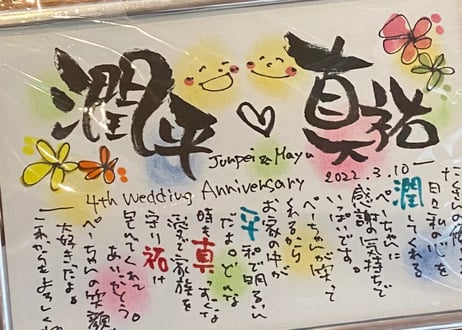 潤平
真祐
Junpei & Mayu
4th Wedding Anniversary
2022.3.10
日々私の心を
潤してくれる
ぺーちゃんに
感謝の気持ちで
いっぱいです。
ぺーちゃんが笑って
くれるから
お家の中が
平和で明るい
だよ。どんな
時も真っすぐな
愛で家族を
守り祐け
てくれて
ありがとう。
ぺーちゃんの笑顔
大好きだよ。
これからもよろしく